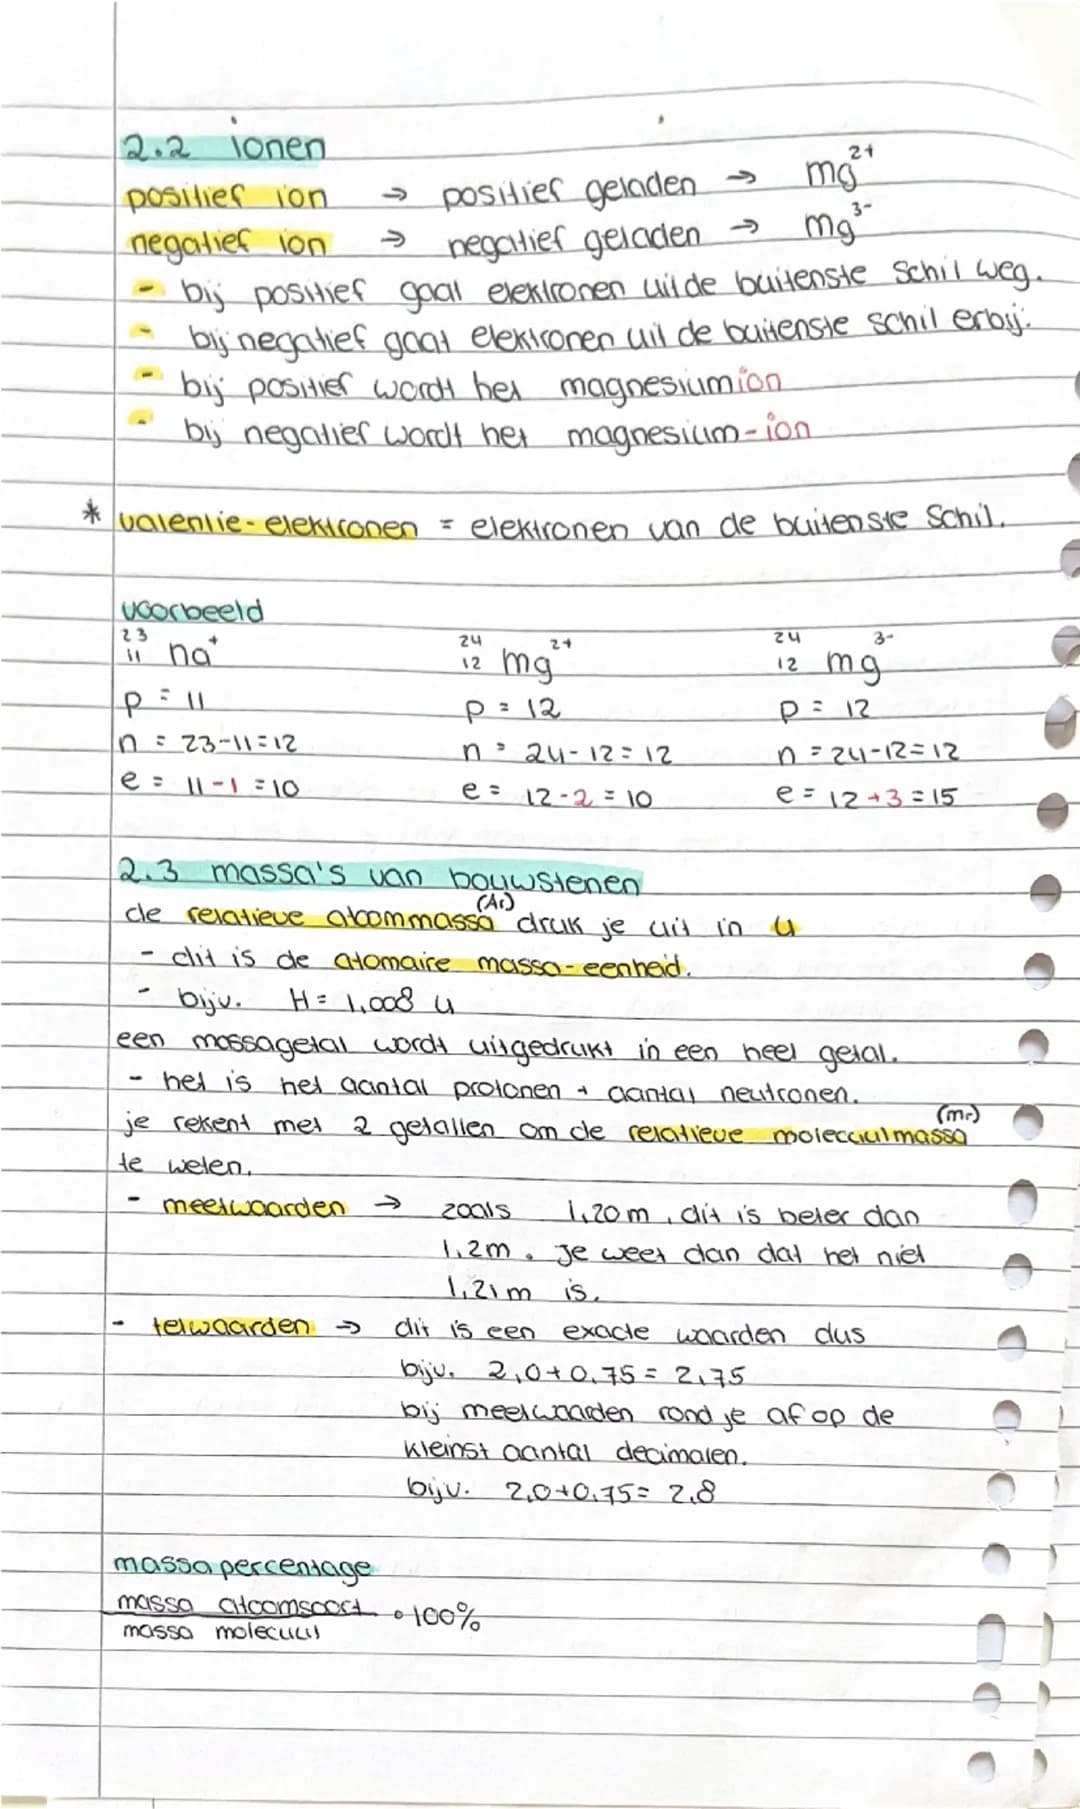 2.2 ionen
positief ion → positief geladen → mg²⁺
negatief ion → negatief geladen → mg³⁻
- bij positief gaat elektronen uit de buitenste schil weg.
- bij negatief gaat elektronen uit de buitenste schil erbij.
- bij positief wordt het magnesiumion
- bij negatief wordt het magnesium-ion
* valentie-elektronen = elektronen van de buitenste schil.
voorbeeld
²³₁₁ na⁺ ²⁴₁₂ mg²⁺ ²⁴₁₂ mg³⁻
p = 11 p = 12 p = 12
n = 23-11=12 n = 24-12=12 n = 24-12=12
e = 11-1=10 e = 12-2=10 e = 12+3=15
2.3 massa's van bouwstenen
de relatieve atoommassa (Ar) druk je uit in u
- dit is de atomaire massa-eenheid.
- bijv. H = 1,008 u
een massagetal wordt uitgedrukt in een heel getal.
- het is het aantal protonen + aantal neutronen.
je rekent met 2 getallen om de relatieve moleculmassa (mr)
te weten.
- meetwaarden → zoals 1,20 m, dit is beter dan
1,2m. Je weet dan dat het niet
1,21 m is.
- telwaarden → dit is een exacte waarden dus
bijv. 2,0+0,75= 2,75
bij meetwaarden rond je af op de
kleinst aantal decimalen.
bijv. 2,0+0,75= 2,8
massapercentage
massa atoomsoort • 100%
massa molecuul